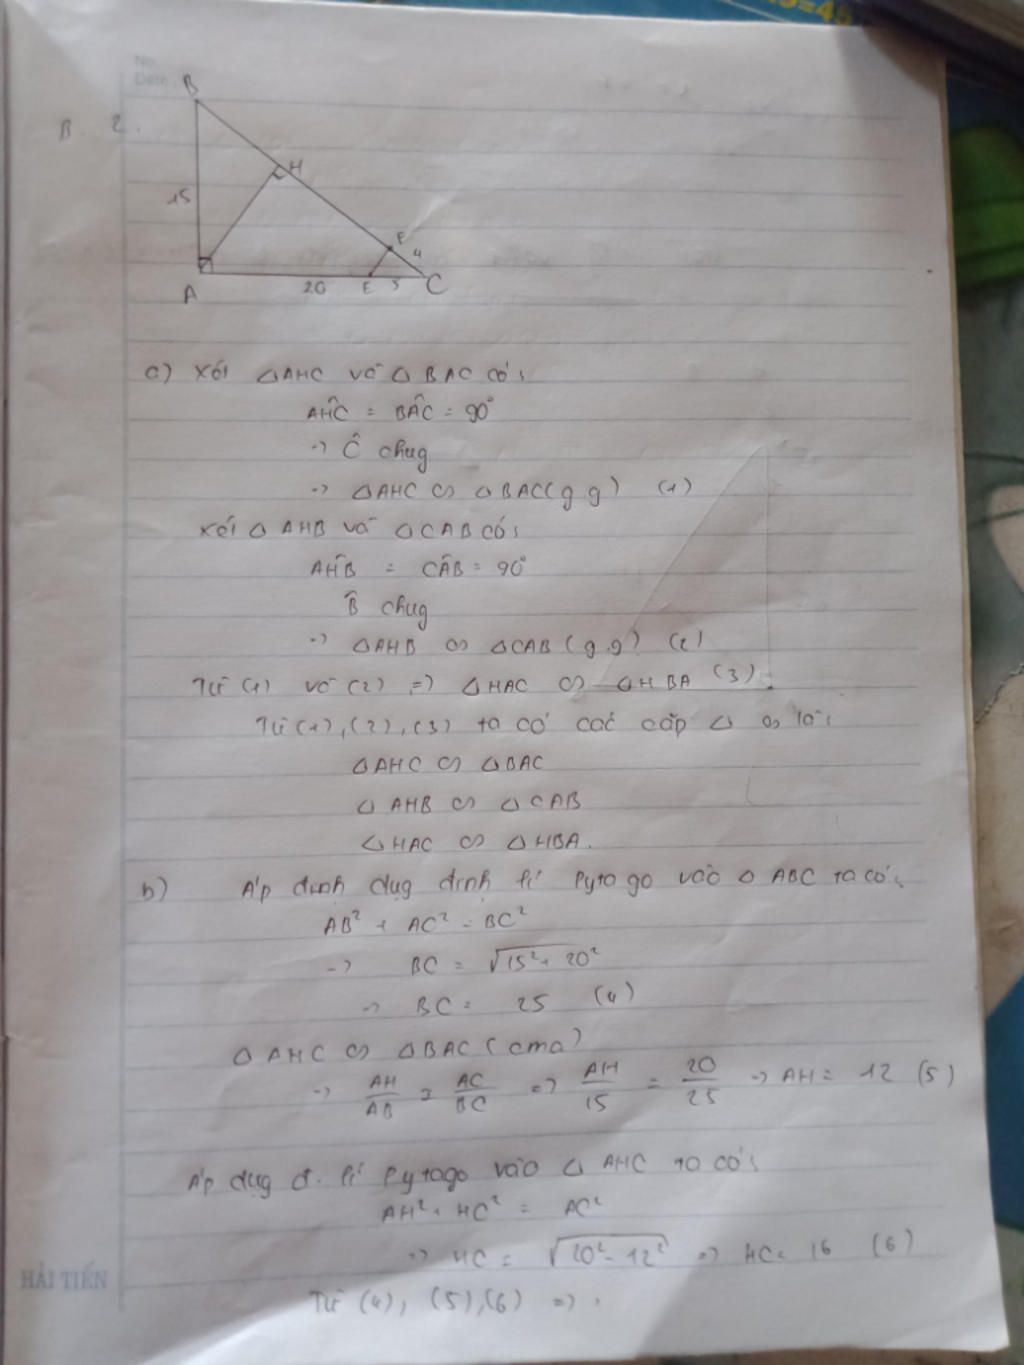 No.
Date
B. 2.
B
H
15
F
4
A
20
E
5
C
a) Xét △AHC và △BAC có:
AĤC = BÂC = 90°
-> Ĉ chug
-> △AHC ∽ △BAC (g.g) (1)
Xét △AHB và △CAB có:
AĤB = CÂB = 90°
B̂ chug
-> △AHB ∽ △CAB (g.g) (2)
Từ (1) và (2) => △HAC ∽ △HBA (3)
Từ (1), (2), (3) ta có các cặp △ ∽ là:
△AHC ∽ △BAC
△AHB ∽ △CAB
△HAC ∽ △HBA.
b) Áp định dụg định lí Pytago vào △ABC ta có:
AB² + AC² = BC²
-> BC = √15² + 20²
-> BC = 25 (4)
△AHC ∽ △BAC (cma)
-> AH/AB = AC/BC => AH/15 = 20/25 -> AH = 12 (5)
Áp dụg đ. lí Pytago vào △AHC ta có:
AH² + HC² = AC²
-> HC = √20² - 12² => HC = 16 (6)
Từ (4), (5), (6) => .
HẢI TIẾN